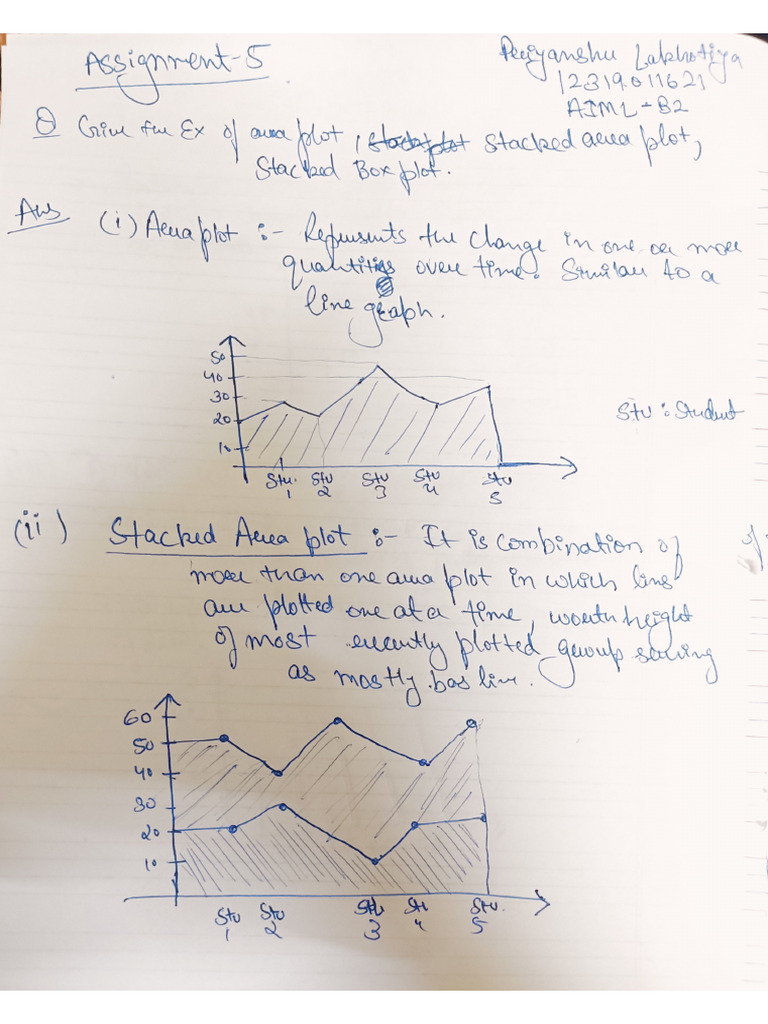 Assignment-5
Priyanshu Lakhotiya
12319011621
AIML-B2
Q Give the Ex of area plot, stack plot stacked area plot,
Stacked Box plot.
Ans (i) Area plot :- Represents the change in one or more
quantities over time. Similar to a
line graph.
50
40
30
20
10
Stu : Student
Stu. 1 Stu 2 Stu 3 Stu 4 Stu 5
(ii) Stacked Area plot :- It is combination of
of
more than one area plot in which line
are plotted one at a time, with height
of most recently plotted group serving
as mostly bas line.
60
50
40
30
20
10
Stu 1 Stu 2 Stu 3 Stu 4 Stu. 5